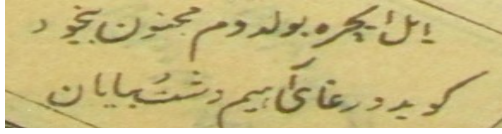 ایل ایچره بولدوم مجنون بیخود
کوبدور غای آهیم دشت بیابان